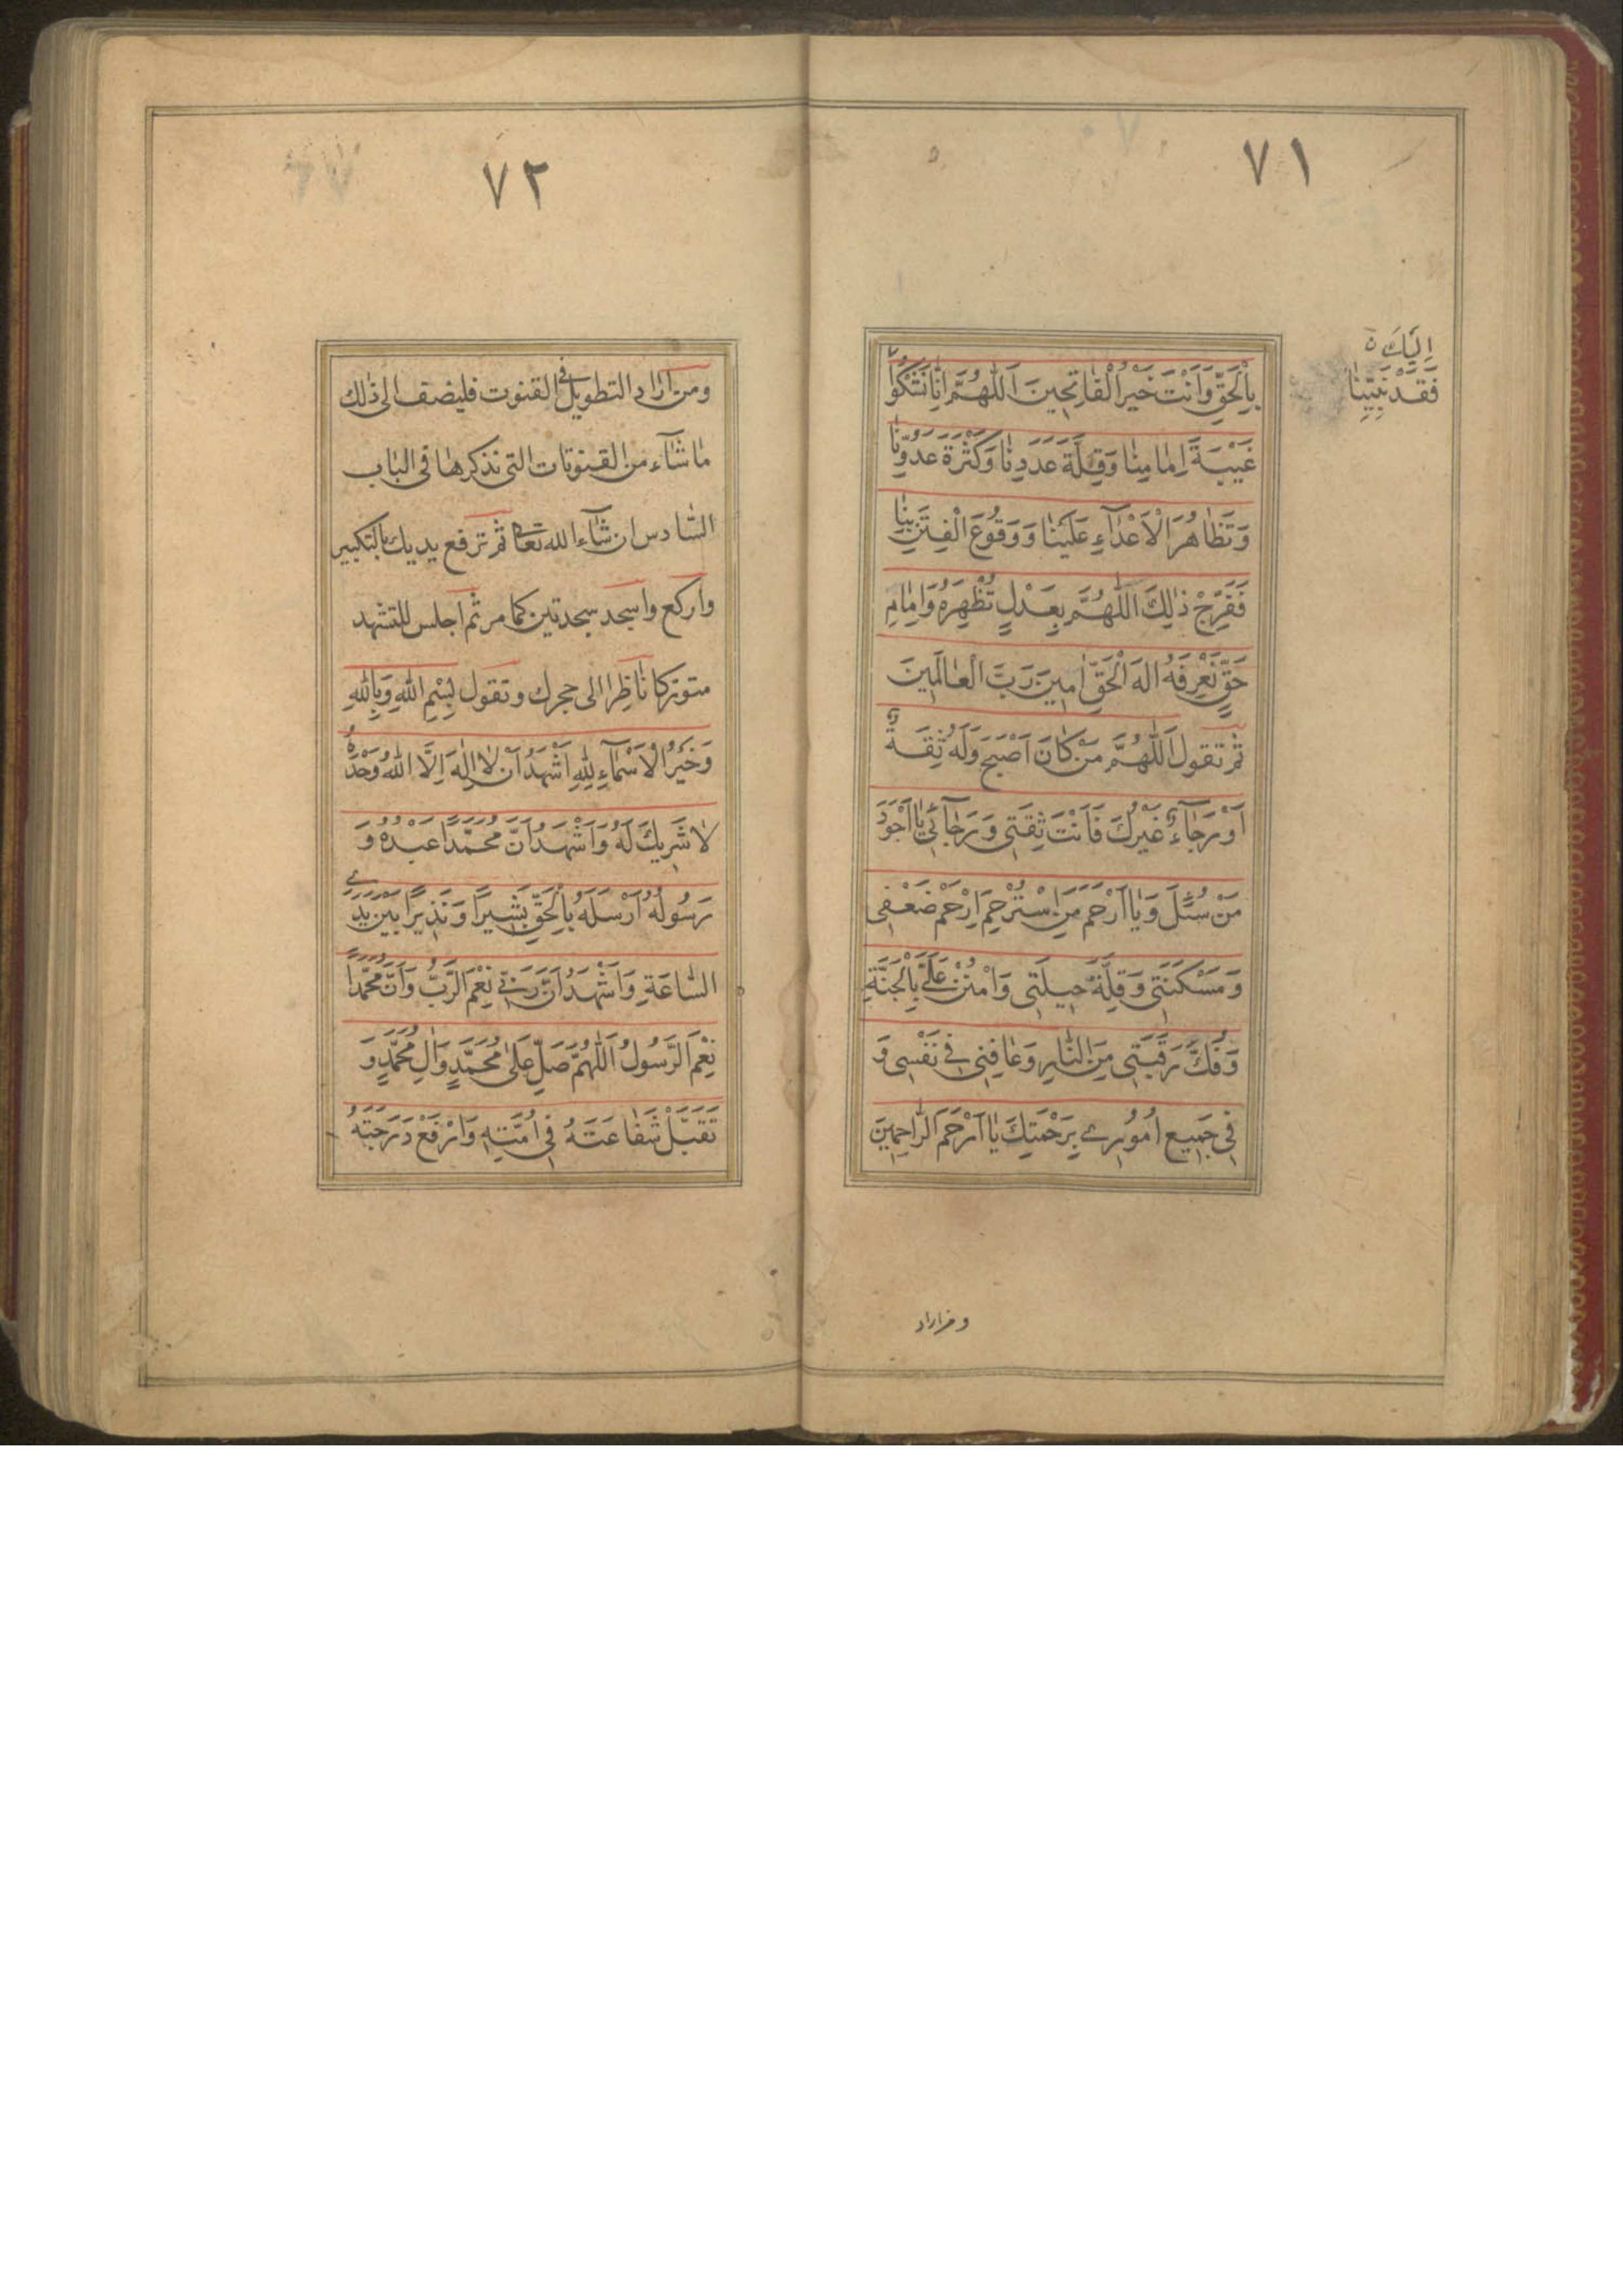 ٧١
بِالْحَقِّ وَاَنْتَ خَيْرُ الْفَاتِحِينَ اَللّٰهُمَّ اِنَّا نَشْكُوا
اِلَيْكَ
فَقْدَ نَبِيِّنَا
غَيْبَةَ اِمَامِنَا وَقِلَّةَ عَدَدِنَا وَكَثْرَةَ عَدُوِّنَا
وَتَظَاهُرَ الْاَعْدَآءِ عَلَيْنَا وَوُقُوعَ الْفِتَنِ بِنَا
فَفَرِّجْ ذٰلِكَ اللّٰهُمَّ بِعَدْلٍ تُظْهِرُهُ وَاِمَامِ
حَقٍّ نَعْرِفُهُ اِلٰهَ الْحَقِّ اٰمِينَ رَبَّ الْعَالَمِينَ
ثم تقول اَللّٰهُمَّ مَنْ كَانَ اَصْبَحَ وَلَهُ ثِقَةٌ
اَوْ رَجَآءٌ غَيْرُكَ فَاَنْتَ ثِقَتِى وَرَجَآئِى يَا اَجْوَدَ
مَنْ سُئِلَ وَيَا اَرْحَمَ مَنِ اسْتُرْحِمَ اِرْحَمْ ضَعْفِى
وَمَسْكَنَتِى وَقِلَّةَ حِيلَتِى وَامْنُنْ عَلَىَّ بِالْجَنَّةِ
وَفُكَّ رَقَبَتِى مِنَ النَّارِ وَعَافِنِى فِى نَفْسِى وَ
فِى جَمِيعِ اُمُورِى بِرَحْمَتِكَ يَا اَرْحَمَ الرَّاحِمِينَ
ومن اراد
٧٢
ومن اراد التطويل فى القنوت فليضف الى ذلك
ما شآء من القنوتات التى نذكرها فى الباب
السادس ان شآء الله تعالى ثم ترفع يديك بالتكبير
واركع واسجد سجدتين كما مر ثم اجلس للتشهد
متوركا ناظرا الى حجرك وتقول بِسْمِ اللهِ وَبِاللهِ
وَخَيْرُ الْاَسْمَآءِ لِلّٰهِ اَشْهَدُ اَنْ لَا اِلٰهَ اِلَّا اللهُ وَحْدَهُ
لَا شَرِيكَ لَهُ وَاَشْهَدُ اَنَّ مُحَمَّدًا عَبْدُهُ وَ
رَسُولُهُ اَرْسَلَهُ بِالْحَقِّ بَشِيرًا وَنَذِيرًا بَيْنَ يَدَىِ
السَّاعَةِ وَاَشْهَدُ اَنَّ رَبِّى نِعْمَ الرَّبُّ وَاَنَّ مُحَمَّدًا
نِعْمَ الرَّسُولُ اَللّٰهُمَّ صَلِّ عَلٰى مُحَمَّدٍ وَاٰلِ مُحَمَّدٍ وَ
تَقَبَّلْ شَفَاعَتَهُ فِى اُمَّتِهِ وَارْفَعْ دَرَجَتَهُ